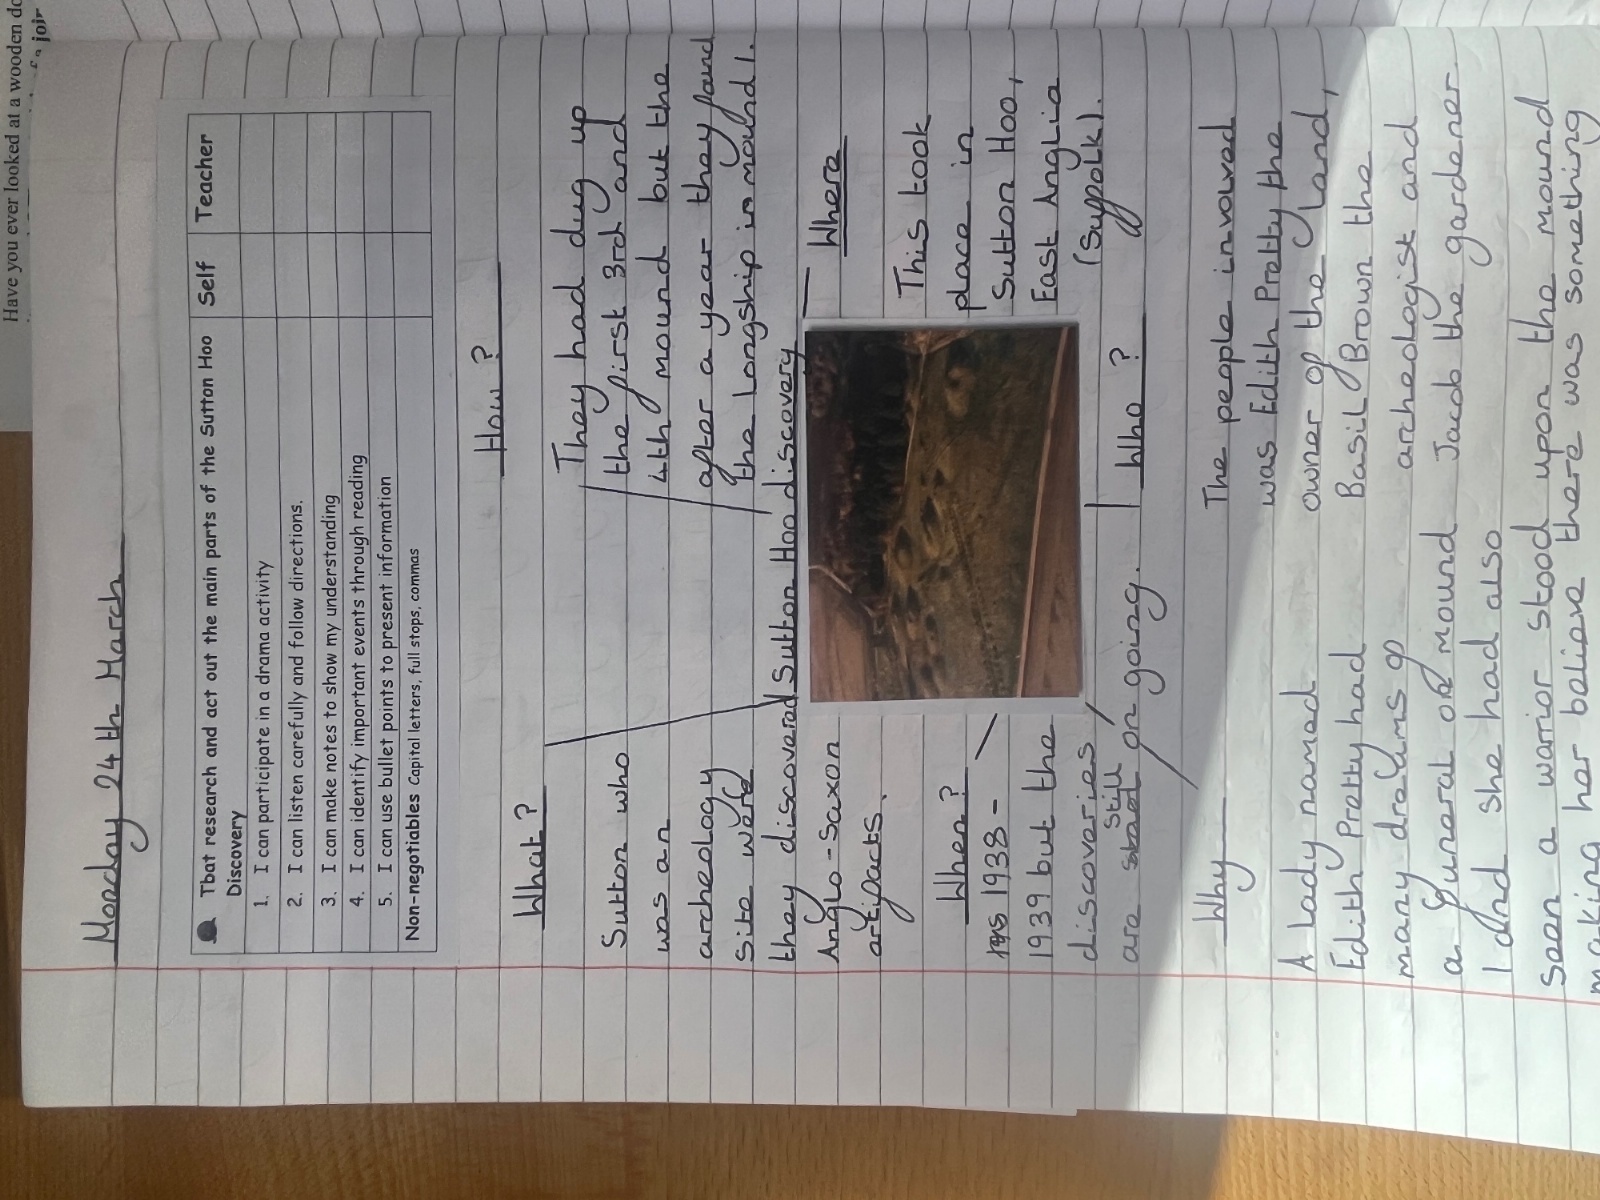 Have you ever looked at a wooden do
Monday 24th March
Tbat research and act out the main parts of the Sutton Hoo Discovery
Self
Teacher
1. I can participate in a drama activity
2. I can listen carefully and follow directions.
3. I can make notes to show my understanding
4. I can identify important events through reading
5. I can use bullet points to present information
Non-negotiables Capital letters, full stops, commas
What?
Sutton who
was an
archeology
site were
they discovered
Anglo-Saxon
artifacts.
How?
They had dug up
the first 3rd and
4th mound but the
after a year they found
the longship in mound 1.
Sutton Hoo discovery
Where
This took
place in
Sutton Hoo,
East Anglia
(Suffolk).
When?
1938 -
1939 but the
discoveries
are still
on going.
Who?
The people involved
was Edith Pretty the
owner of the land,
Basil Brown the
archeologist and
Jacob the gardener.
Why
A lady named
Edith Pretty had
many dreams of
a funeral on mound
1 and she had also
seen a warrior stood upon the mound
making her believe there was something